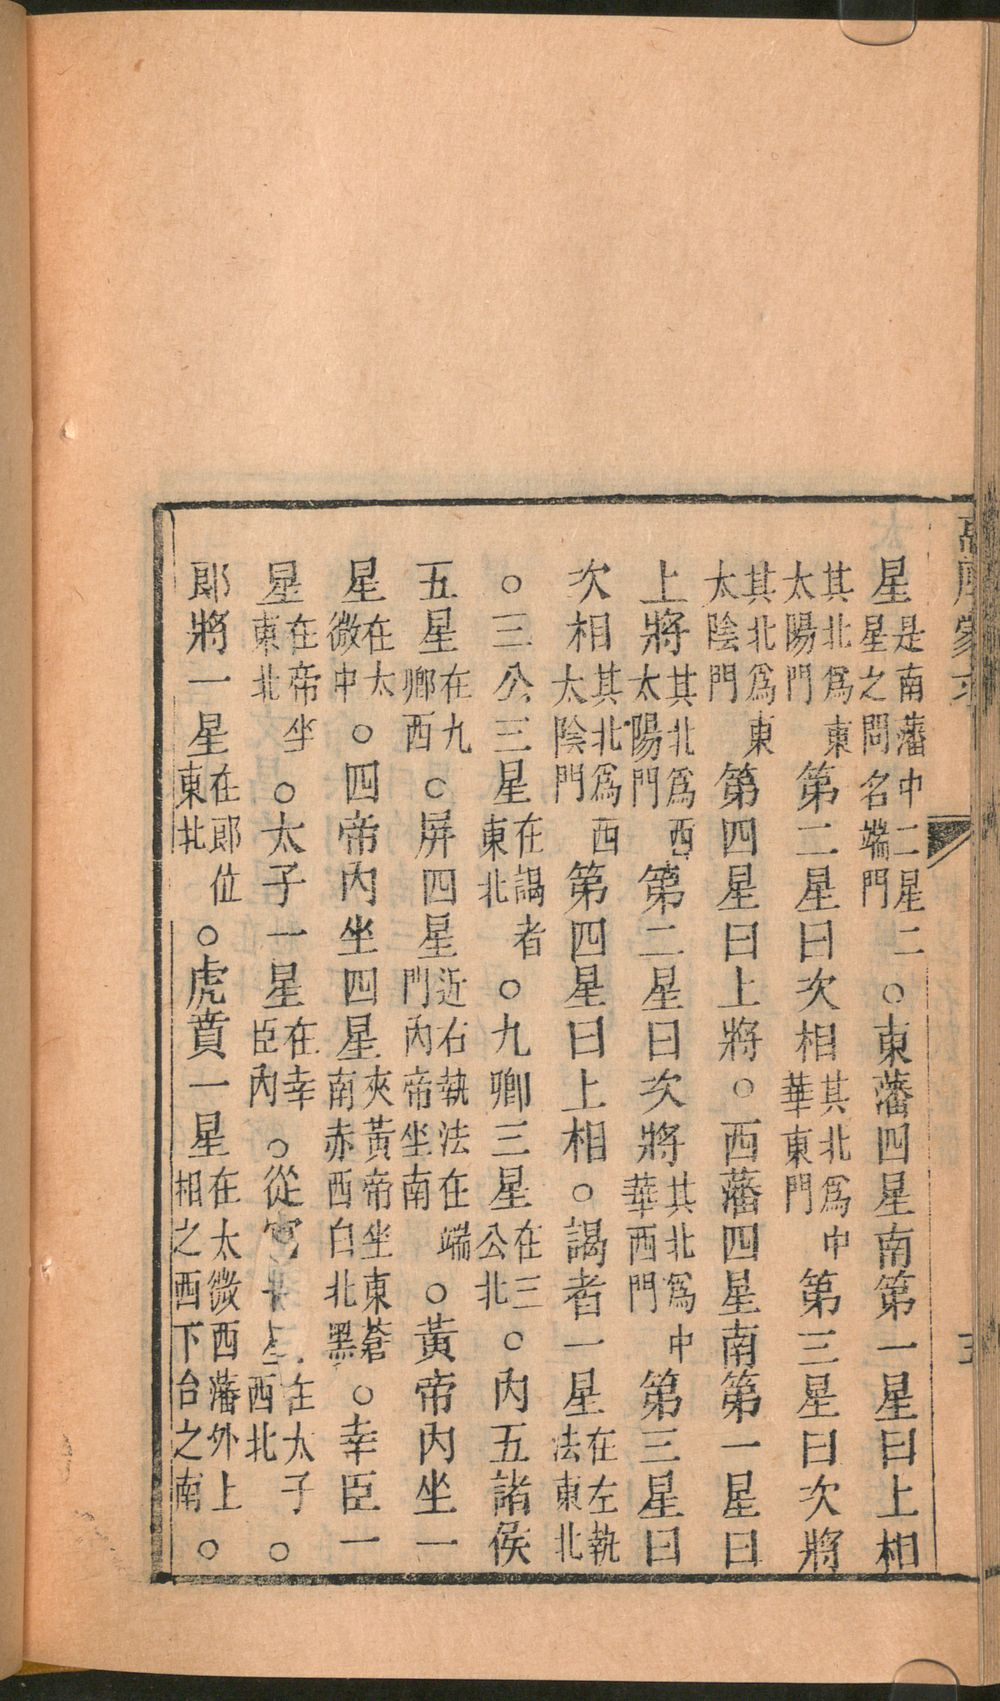 星是南藩中二星二星之間名端門○東藩四星南第一星曰上相
其北爲東太陽門第二星曰次相其北爲中華東門第三星曰次將
其北爲東太陰門第四星曰上將○西藩四星南第一星曰
上將其北爲西太陽門第二星曰次將其北爲中華西門第三星曰
次相其北爲西太陰門第四星曰上相○謁者一星在左執法東北
○三公三星在謁者東北○九卿三星在三公北○內五諸侯
五星在九卿西○屏四星近右執法在端門內帝坐南○黃帝內坐一
星在太微中○四帝內坐四星夾黃帝坐東蒼南赤西白北黑○幸臣一
星在帝坐東北○太子一星在幸臣內○從官在太子西北○
郎將一星在郎位東北○虎賁一星在太微西藩外上相之西下台之南○